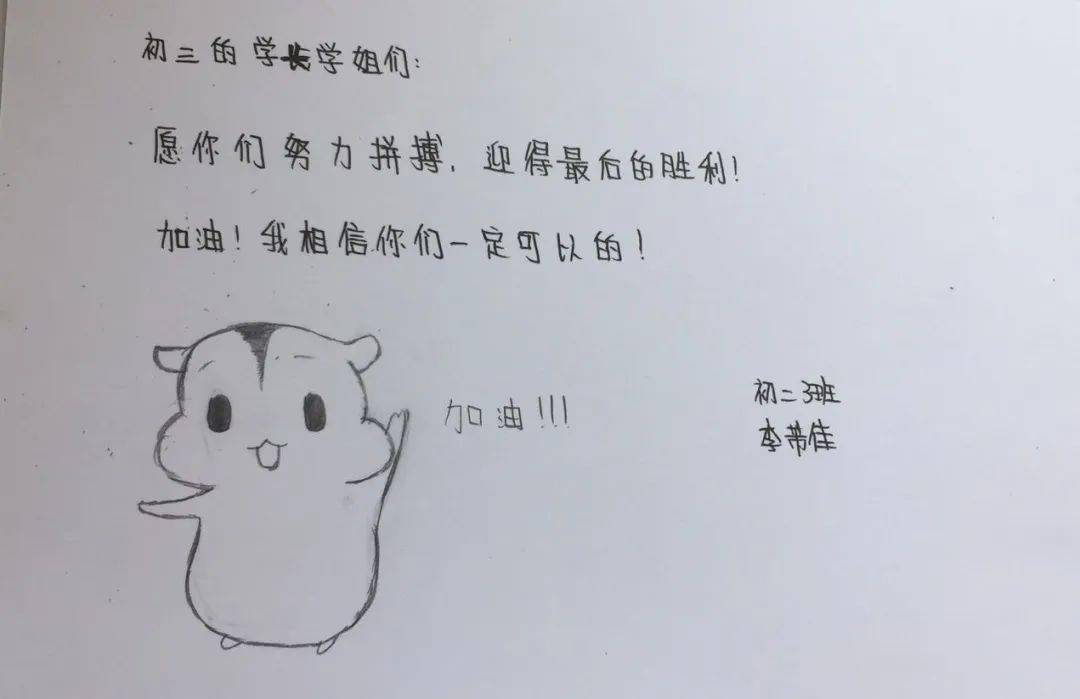 初三的学长学姐们:
愿你们努力拼搏,迎得最后的胜利!
加油!我相信你们一定可以的!
加油!!!
初二3班
李芾佳